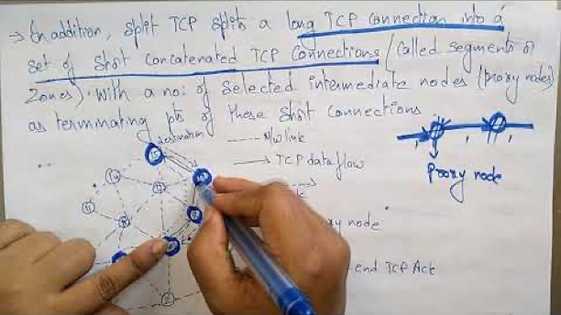 → In addition, split TCP splits a long TCP Connection into a
set of short concatenated TCP Connections (called segments or
zones). with a no: of selected intermediate nodes (proxy nodes)
as terminating pts of these short connections
destination
---- N/w link
→ TCP data flow
Proxy node
15
node
end TCP Ack